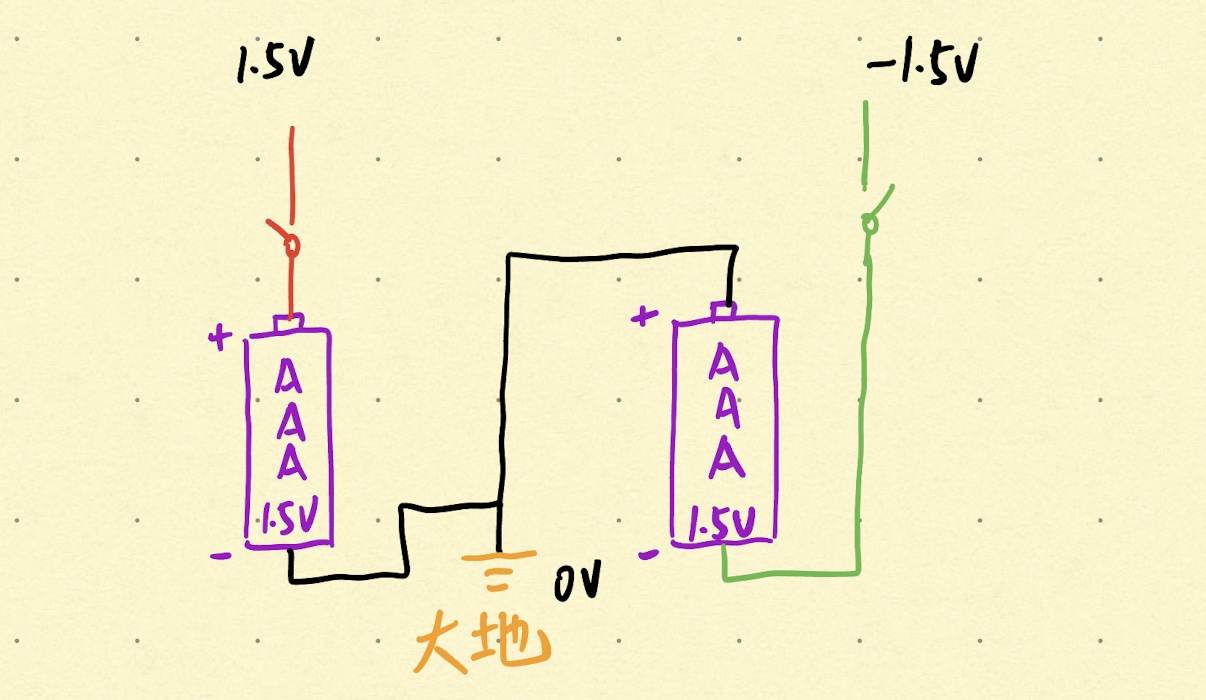 1.5V
-1.5V
+
A
A
A
1.5V
-
+
A
A
A
1.5V
-
0V
大地